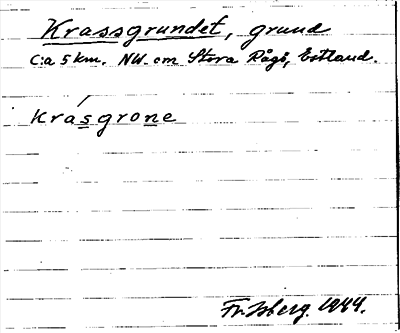 Krassgrundet, grund
c:a 5 km. NW. om Stora Rågö, Estland.
krásgrone
Fr. Isberg 1944.